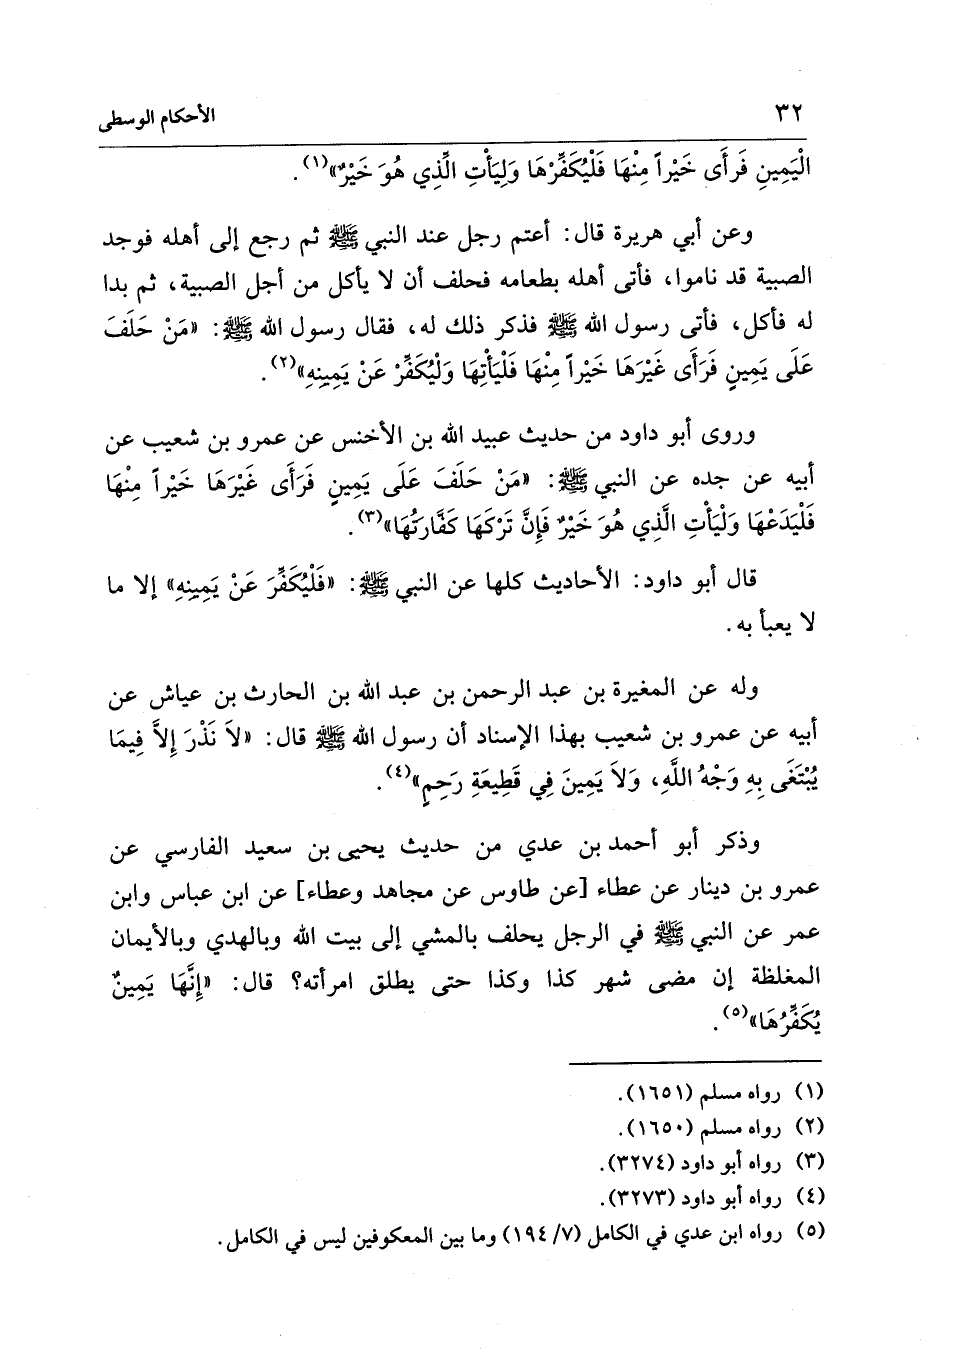 ٣٢
الأحكام الوسطى
الْيَمِينِ فَرَأَى خَيْراً مِنْهَا فَلْيُكَفِّرْهَا وَلِيَأْتِ الَّذِي هُوَ خَيْرٌ»(١).
وعن أبي هريرة قال: أعتم رجل عند النبي ﷺ ثم رجع إلى أهله فوجد
الصبية قد ناموا، فأتى أهله بطعامه فحلف أن لا يأكل من أجل الصبية، ثم بدا
له فأكل، فأتى رسول الله ﷺ فذكر ذلك له، فقال رسول الله ﷺ: «مَنْ حَلَفَ
عَلَى يَمِينٍ فَرَأَى غَيْرَهَا خَيْراً مِنْهَا فَلْيَأْتِهَا وَلْيُكَفِّرْ عَنْ يَمِينِهِ»(٢).
وروى أبو داود من حديث عبيد الله بن الأخنس عن عمرو بن شعيب عن
أبيه عن جده عن النبي ﷺ: «مَنْ حَلَفَ عَلَى يَمِينٍ فَرَأَى غَيْرَهَا خَيْراً مِنْهَا
فَلْيَدَعْهَا وَلْيَأْتِ الَّذِي هُوَ خَيْرٌ فَإِنَّ تَرْكَهَا كَفَّارَتُهَا»(٣).
قال أبو داود: الأحاديث كلها عن النبي ﷺ: «فَلْيُكَفِّرَ عَنْ يَمِينِهِ» إلا ما
لا يعبأ به.
وله عن المغيرة بن عبد الرحمن بن عبد الله بن الحارث بن عياش عن
أبيه عن عمرو بن شعيب بهذا الإسناد أن رسول الله ﷺ قال: «لاَ نَذْرَ إِلاَّ فِيمَا
يُبْتَغَى بِهِ وَجْهُ اللَّهِ، وَلاَ يَمِينَ فِي قَطِيعَةِ رَحِمٍ»(٤).
وذكر أبو أحمد بن عدي من حديث يحيى بن سعيد الفارسي عن
عمرو بن دينار عن عطاء [عن طاوس عن مجاهد وعطاء] عن ابن عباس وابن
عمر عن النبي ﷺ في الرجل يحلف بالمشي إلى بيت الله وبالهدي وبالأيمان
المغلظة إن مضى شهر كذا وكذا حتى يطلق امرأته؟ قال: «إِنَّهَا يَمِينٌ
يُكَفِّرُهَا»(٥).
(١) رواه مسلم (١٦٥١).
(٢) رواه مسلم (١٦٥٠).
(٣) رواه أبو داود (٣٢٧٤).
(٤) رواه أبو داود (٣٢٧٣).
(٥) رواه ابن عدي في الكامل (٧/ ١٩٤) وما بين المعكوفين ليس في الكامل.